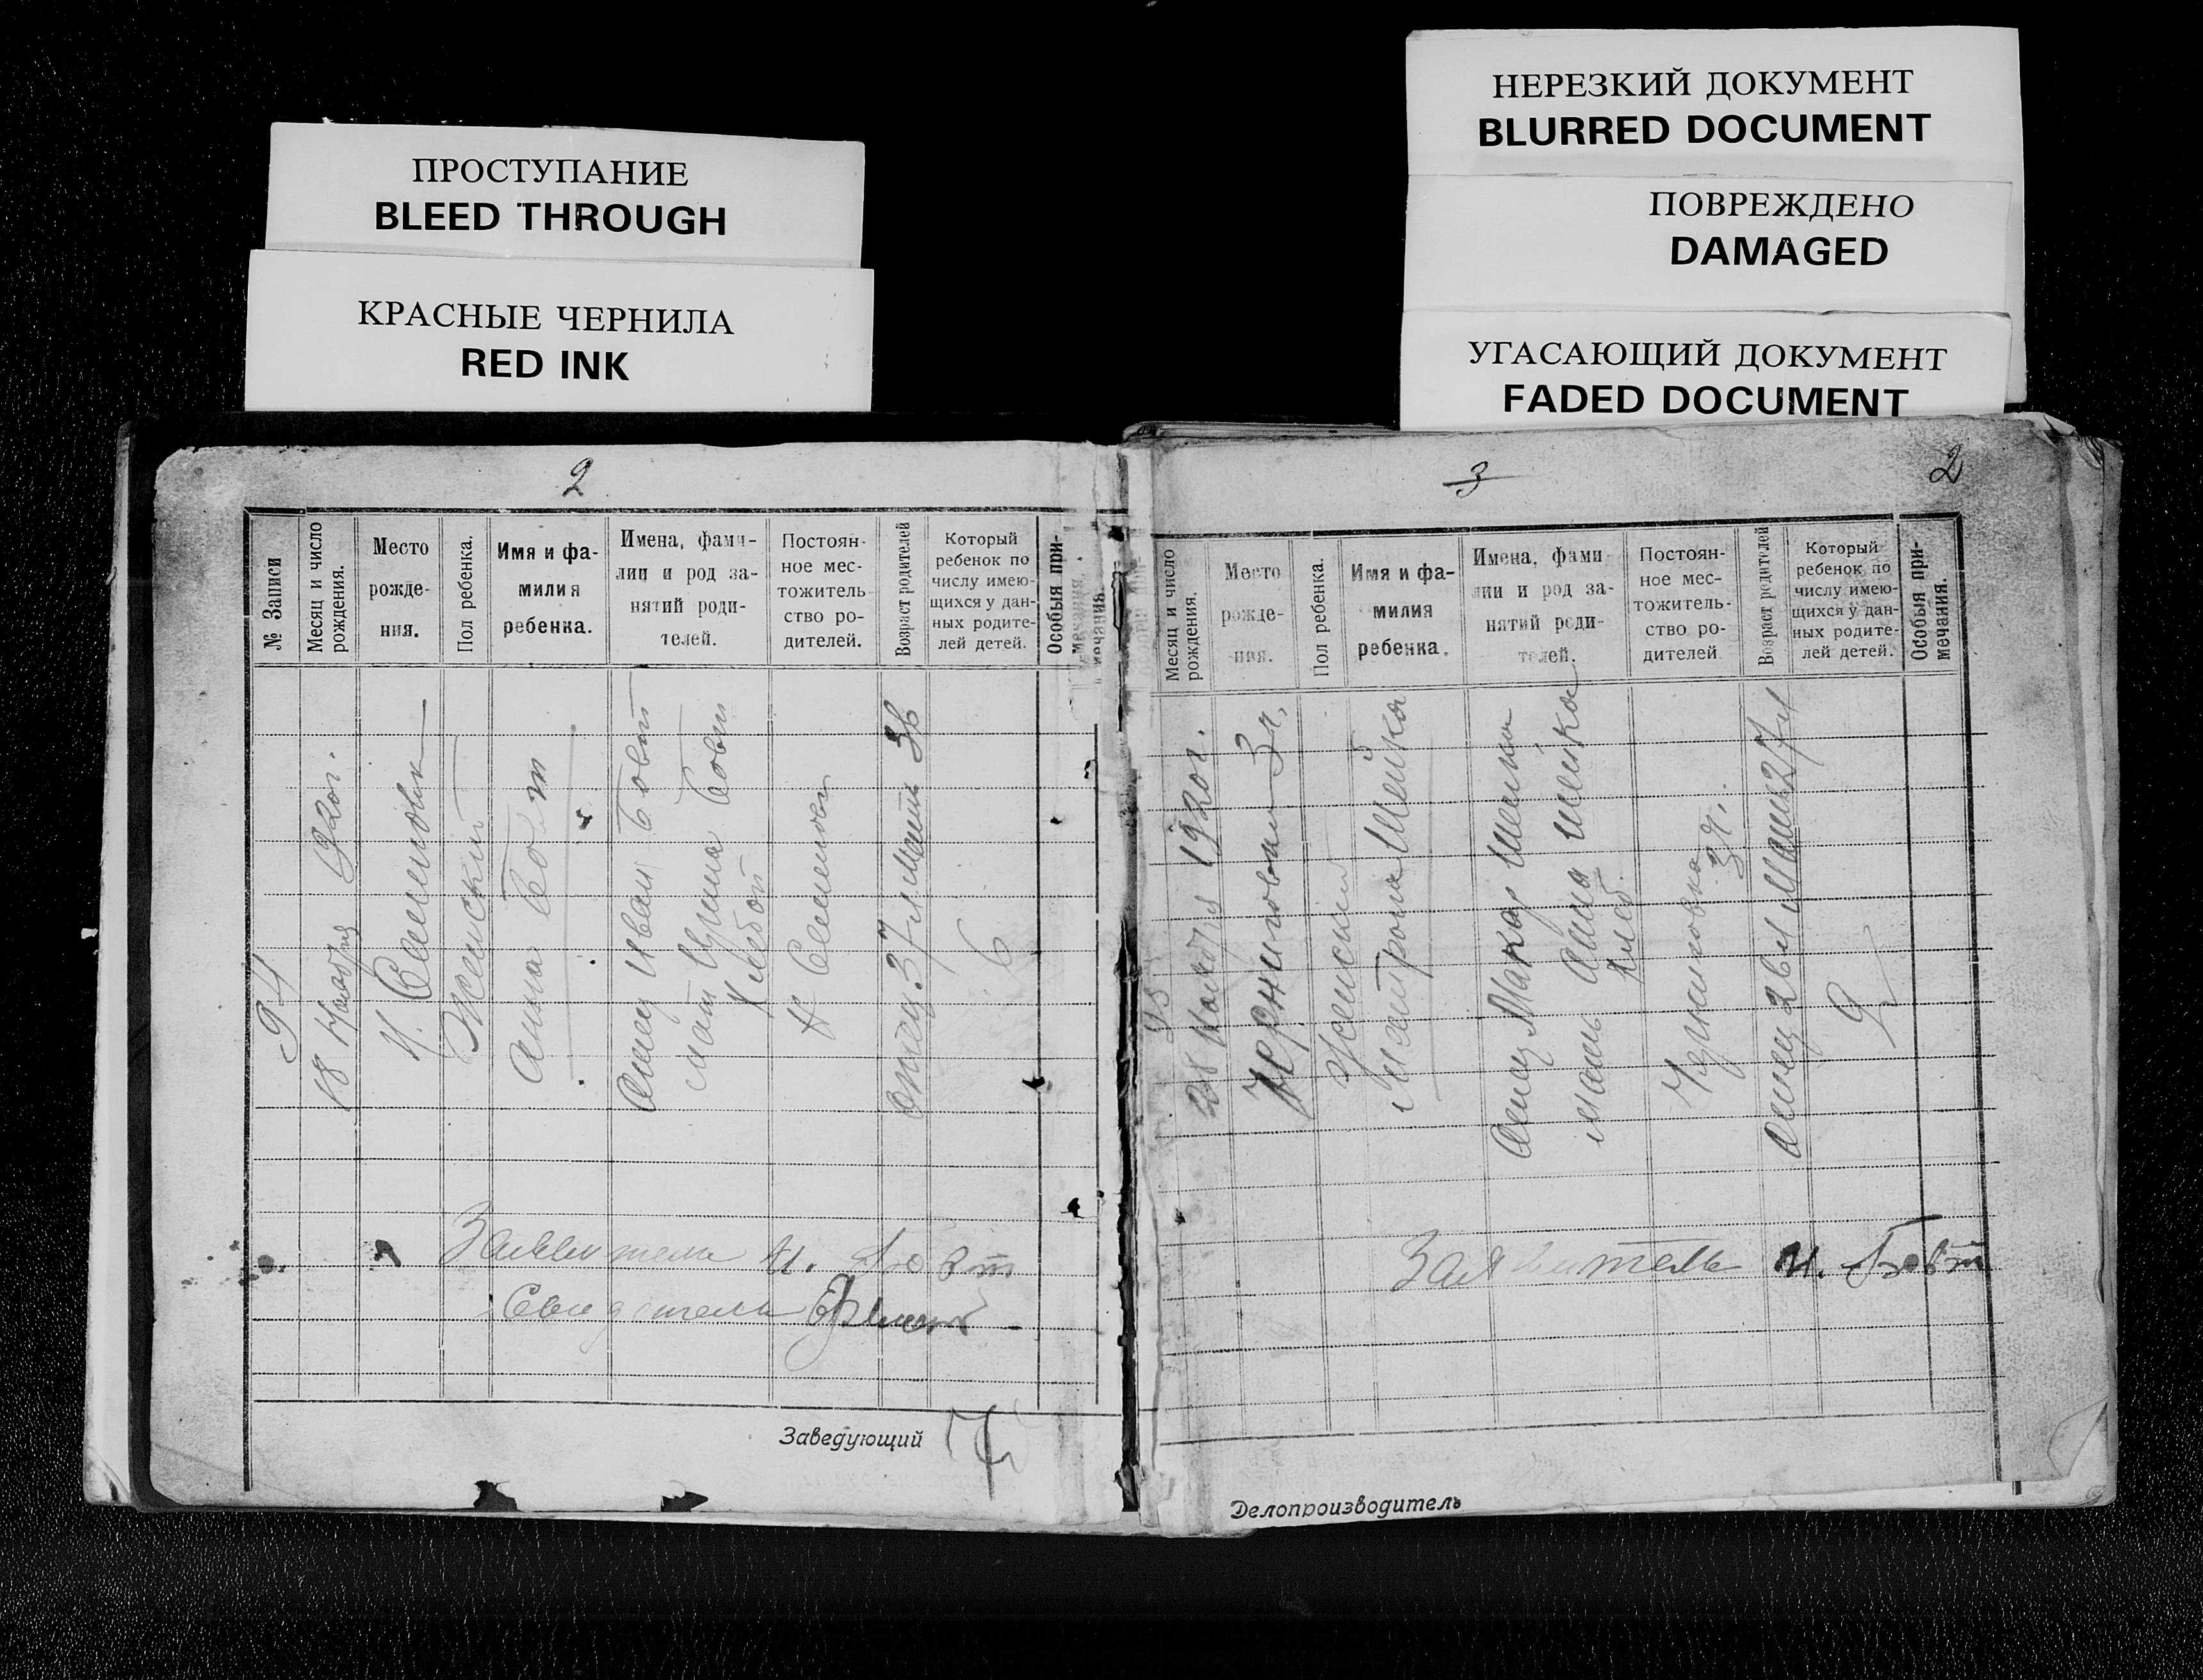 НЕРЕЗКИЙ ДОКУМЕНТ
BLURRED DOCUMENT
ПОВРЕЖДЕНО
DAMAGED
УГАСАЮЩИЙ ДОКУМЕНТ
FADED DOCUMENT
ПРОСТУПАНИЕ
BLEED THROUGH
КРАСНЫЕ ЧЕРНИЛА
RED INK
2
№ Записи
Месяц и число
рождения.
Место
рожде-
ния.
Пол ребенка.
Имя и фа-
милия
ребенка.
Имена, фами-
лии и род за-
нятий роди-
телей.
Постоян-
ное мес-
тожитель-
ство ро-
дителей.
Возраст родителей
Который
ребенок по
числу имею-
щихся у дан-
ных родите-
лей детей.
Особыя при-
мечания.
94
18 Ноября 1920г.
Н.
Женский
Анна Бовт
Отец Иван Бовт
мать Ирина Бовт
Хлебоп
Н
отец 37 л мать 36
6
Заявитель И. Бовт
Свидетель
Заведующий
3
2
Месяц и число
рождения.
Место
рожде-
ния.
Пол ребенка.
Имя и фа-
милия
ребенка.
Имена, фами-
лии и род за-
нятий роди-
телей.
Постоян-
ное мес-
тожитель-
ство ро-
дителей
Возраст родителей
Который
ребенок по
числу имею-
щихся у дан-
ных родите-
лей детей.
Особыя при-
мечания.
95
28 Ноября 1920г.
Женский
Матрона Шейка
Отец Макар Шейка
мать Анна Шейка
Хлеб.
отец 28л мать 27л
2
Заявитель И. Бовт
Делопроизводитель